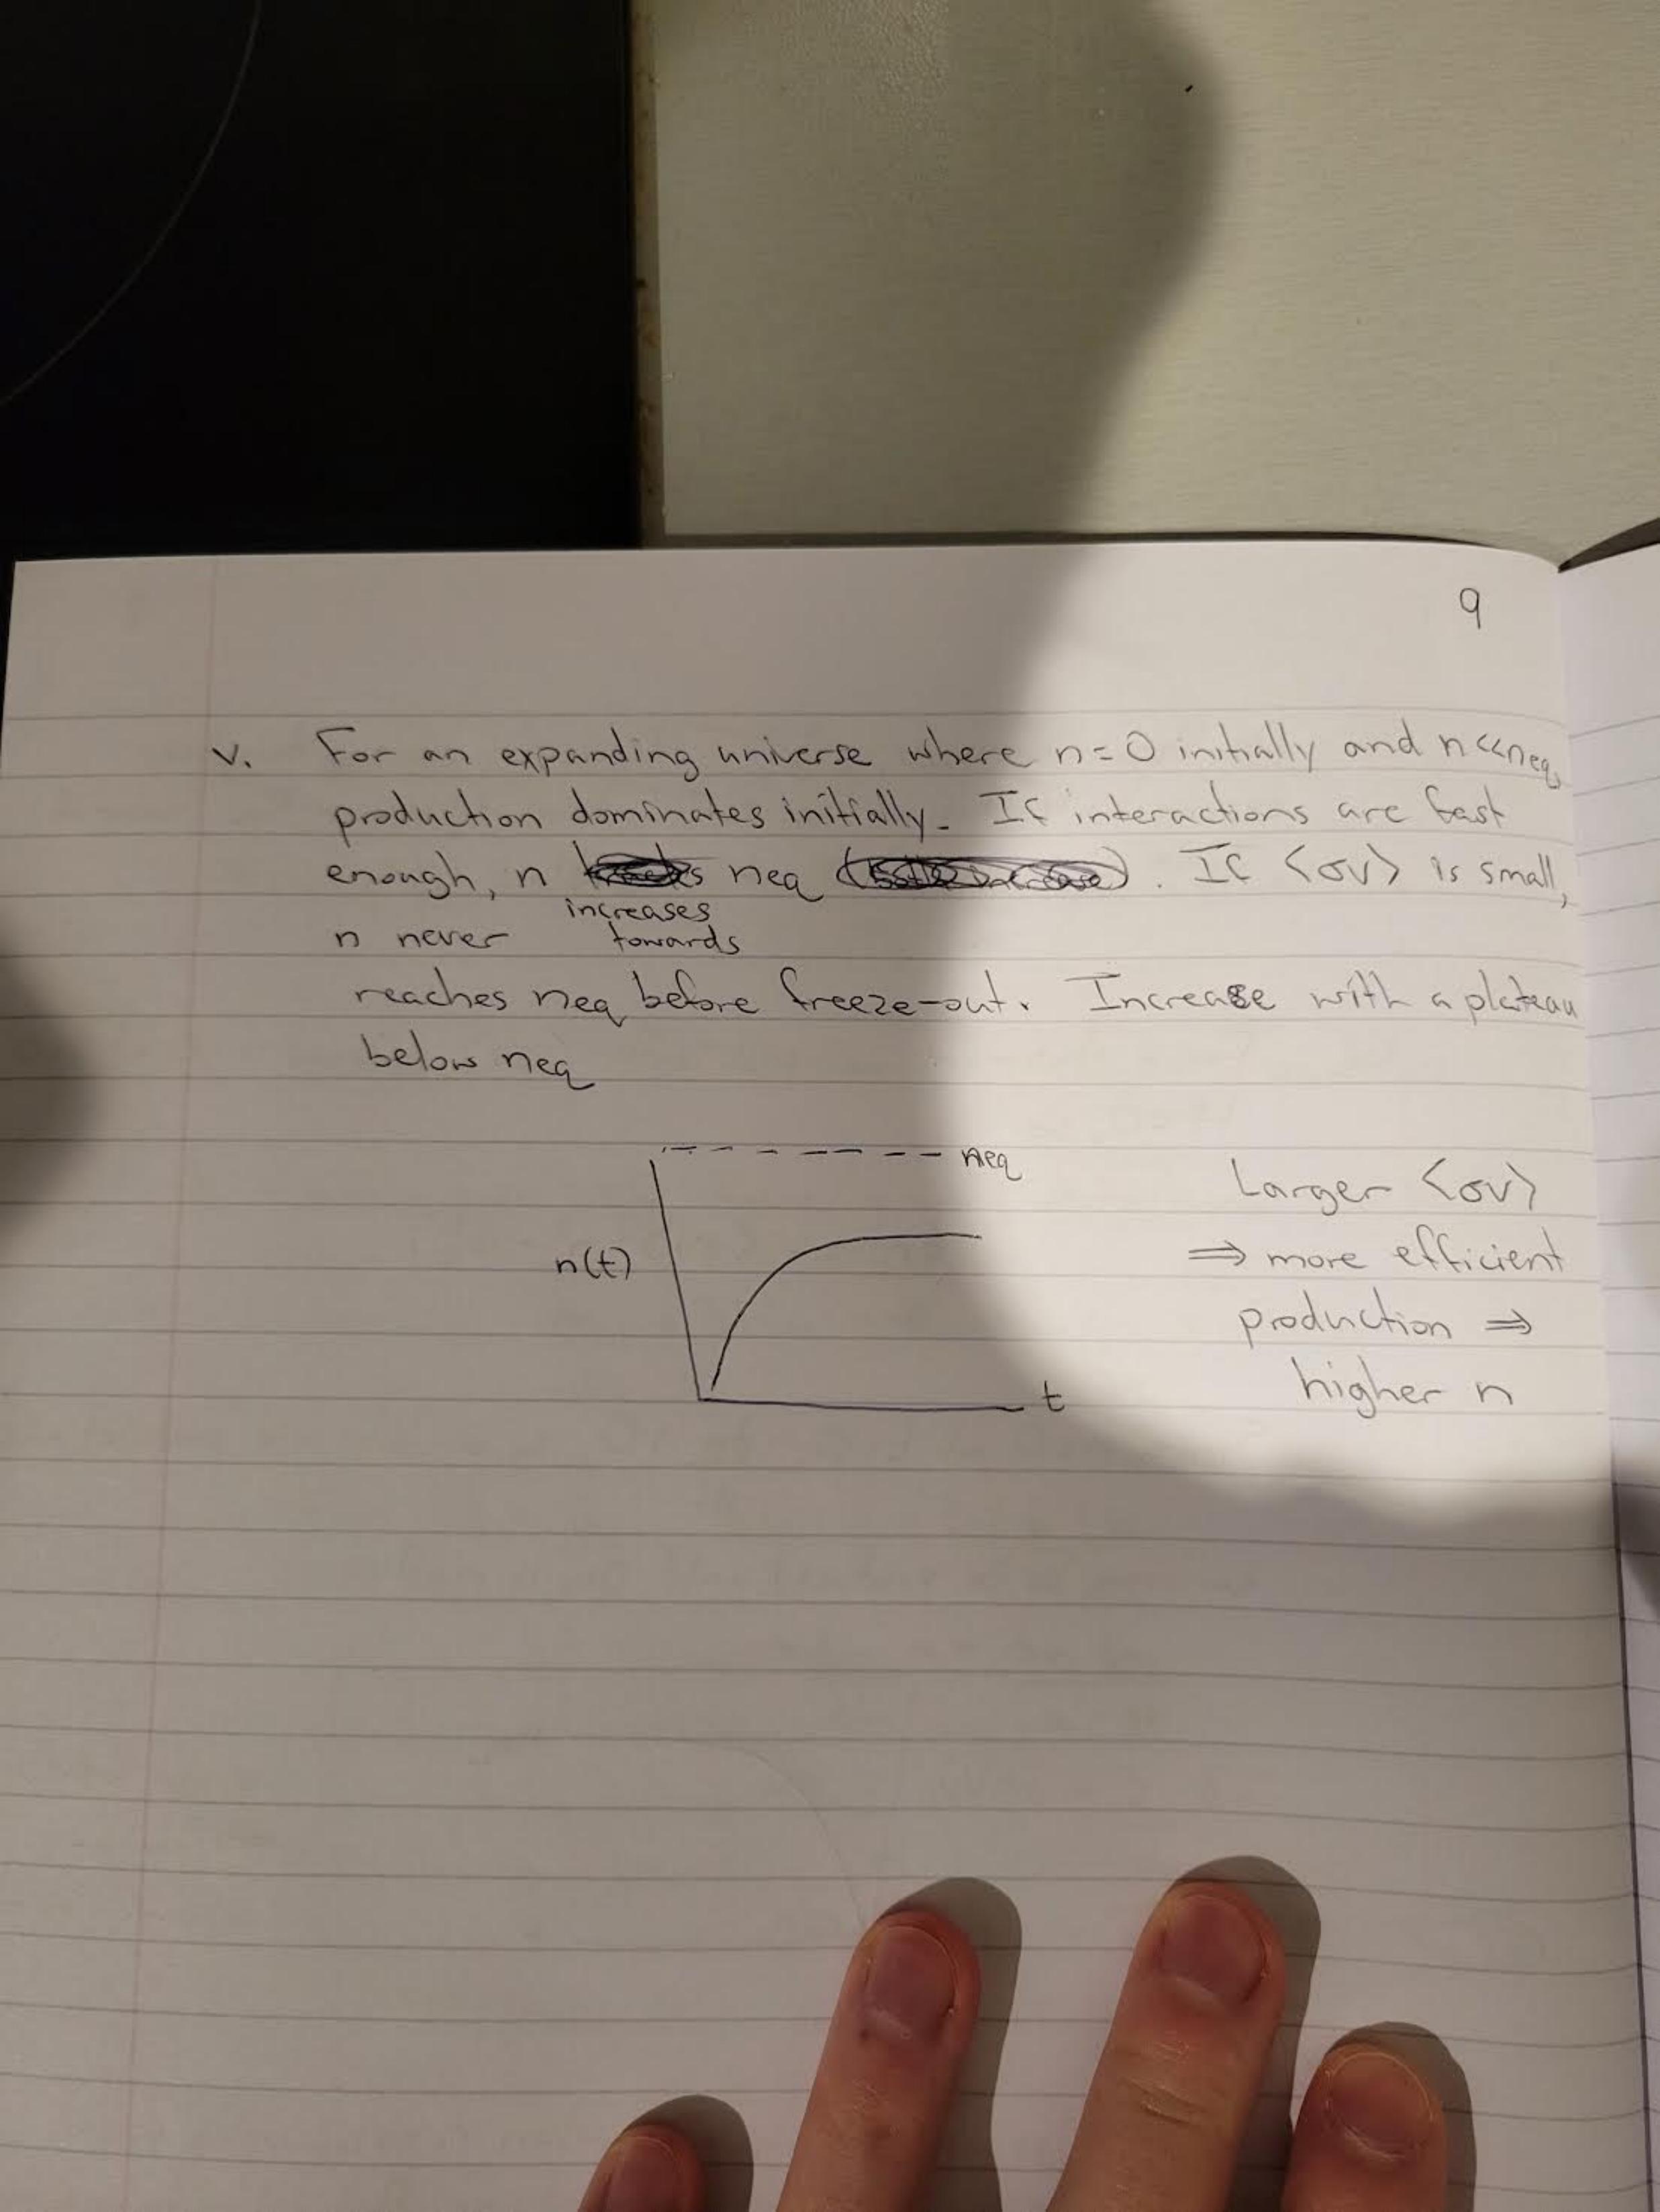 9
v. For an expanding universe where n=0 initially and n<<neq,
production dominates initially. If interactions are fast
enough, n increases towards neq. If <σv> is small,
n never
reaches neq before freeze-out. Increase with a plateau
below neq
neq
n(t)
t
Larger <σv>
⇒ more efficient
production ⇒
higher n